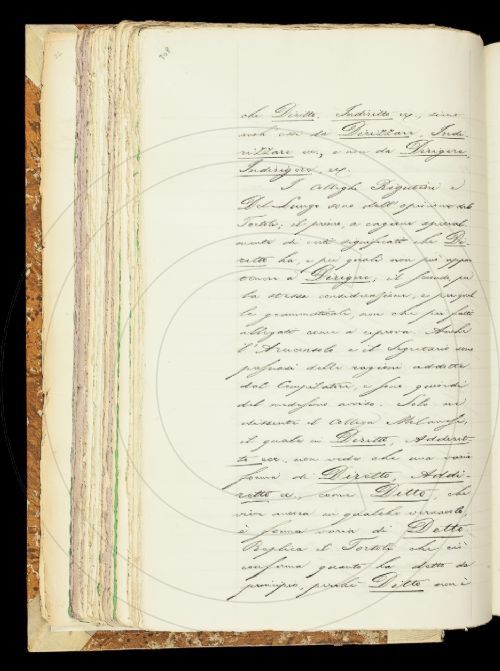 che Diritto, Indiritto ec., sieno
anch' essi da Dirizzare, Indi-
rizzare ec., e non da Dirigere,
Indirigere, ec.
I Colleghi Rigutini e
Del-Lungo sono dell'opinione del
Tortoli; il primo, a cagione special-
mente di certi significati che Di-
ritto ha, e pei quali non può appar-
tenere a Dirigere; il secondo per
la stessa considerazione, e per quel
la grammaticale, non che per fatti
allegati come a riprova. Anche
l'Arciconsolo e il Segretario sono
persuasi delle ragioni addotte
dal Compilatore, e sono quindi
del medesimo avviso. Solo ne
dissente il Collega Milanesi,
il quale in Diritto, Addirit-
to ec., non vede che una varia
forma di Diretto, Addi-
retto ec., come Ditto, che
vive ancora in qualche vernacolo,
è forma varia di Detto.
Replica il Tortoli che ciò
conferma quanto ha detto da
principio, perchè Ditto non è